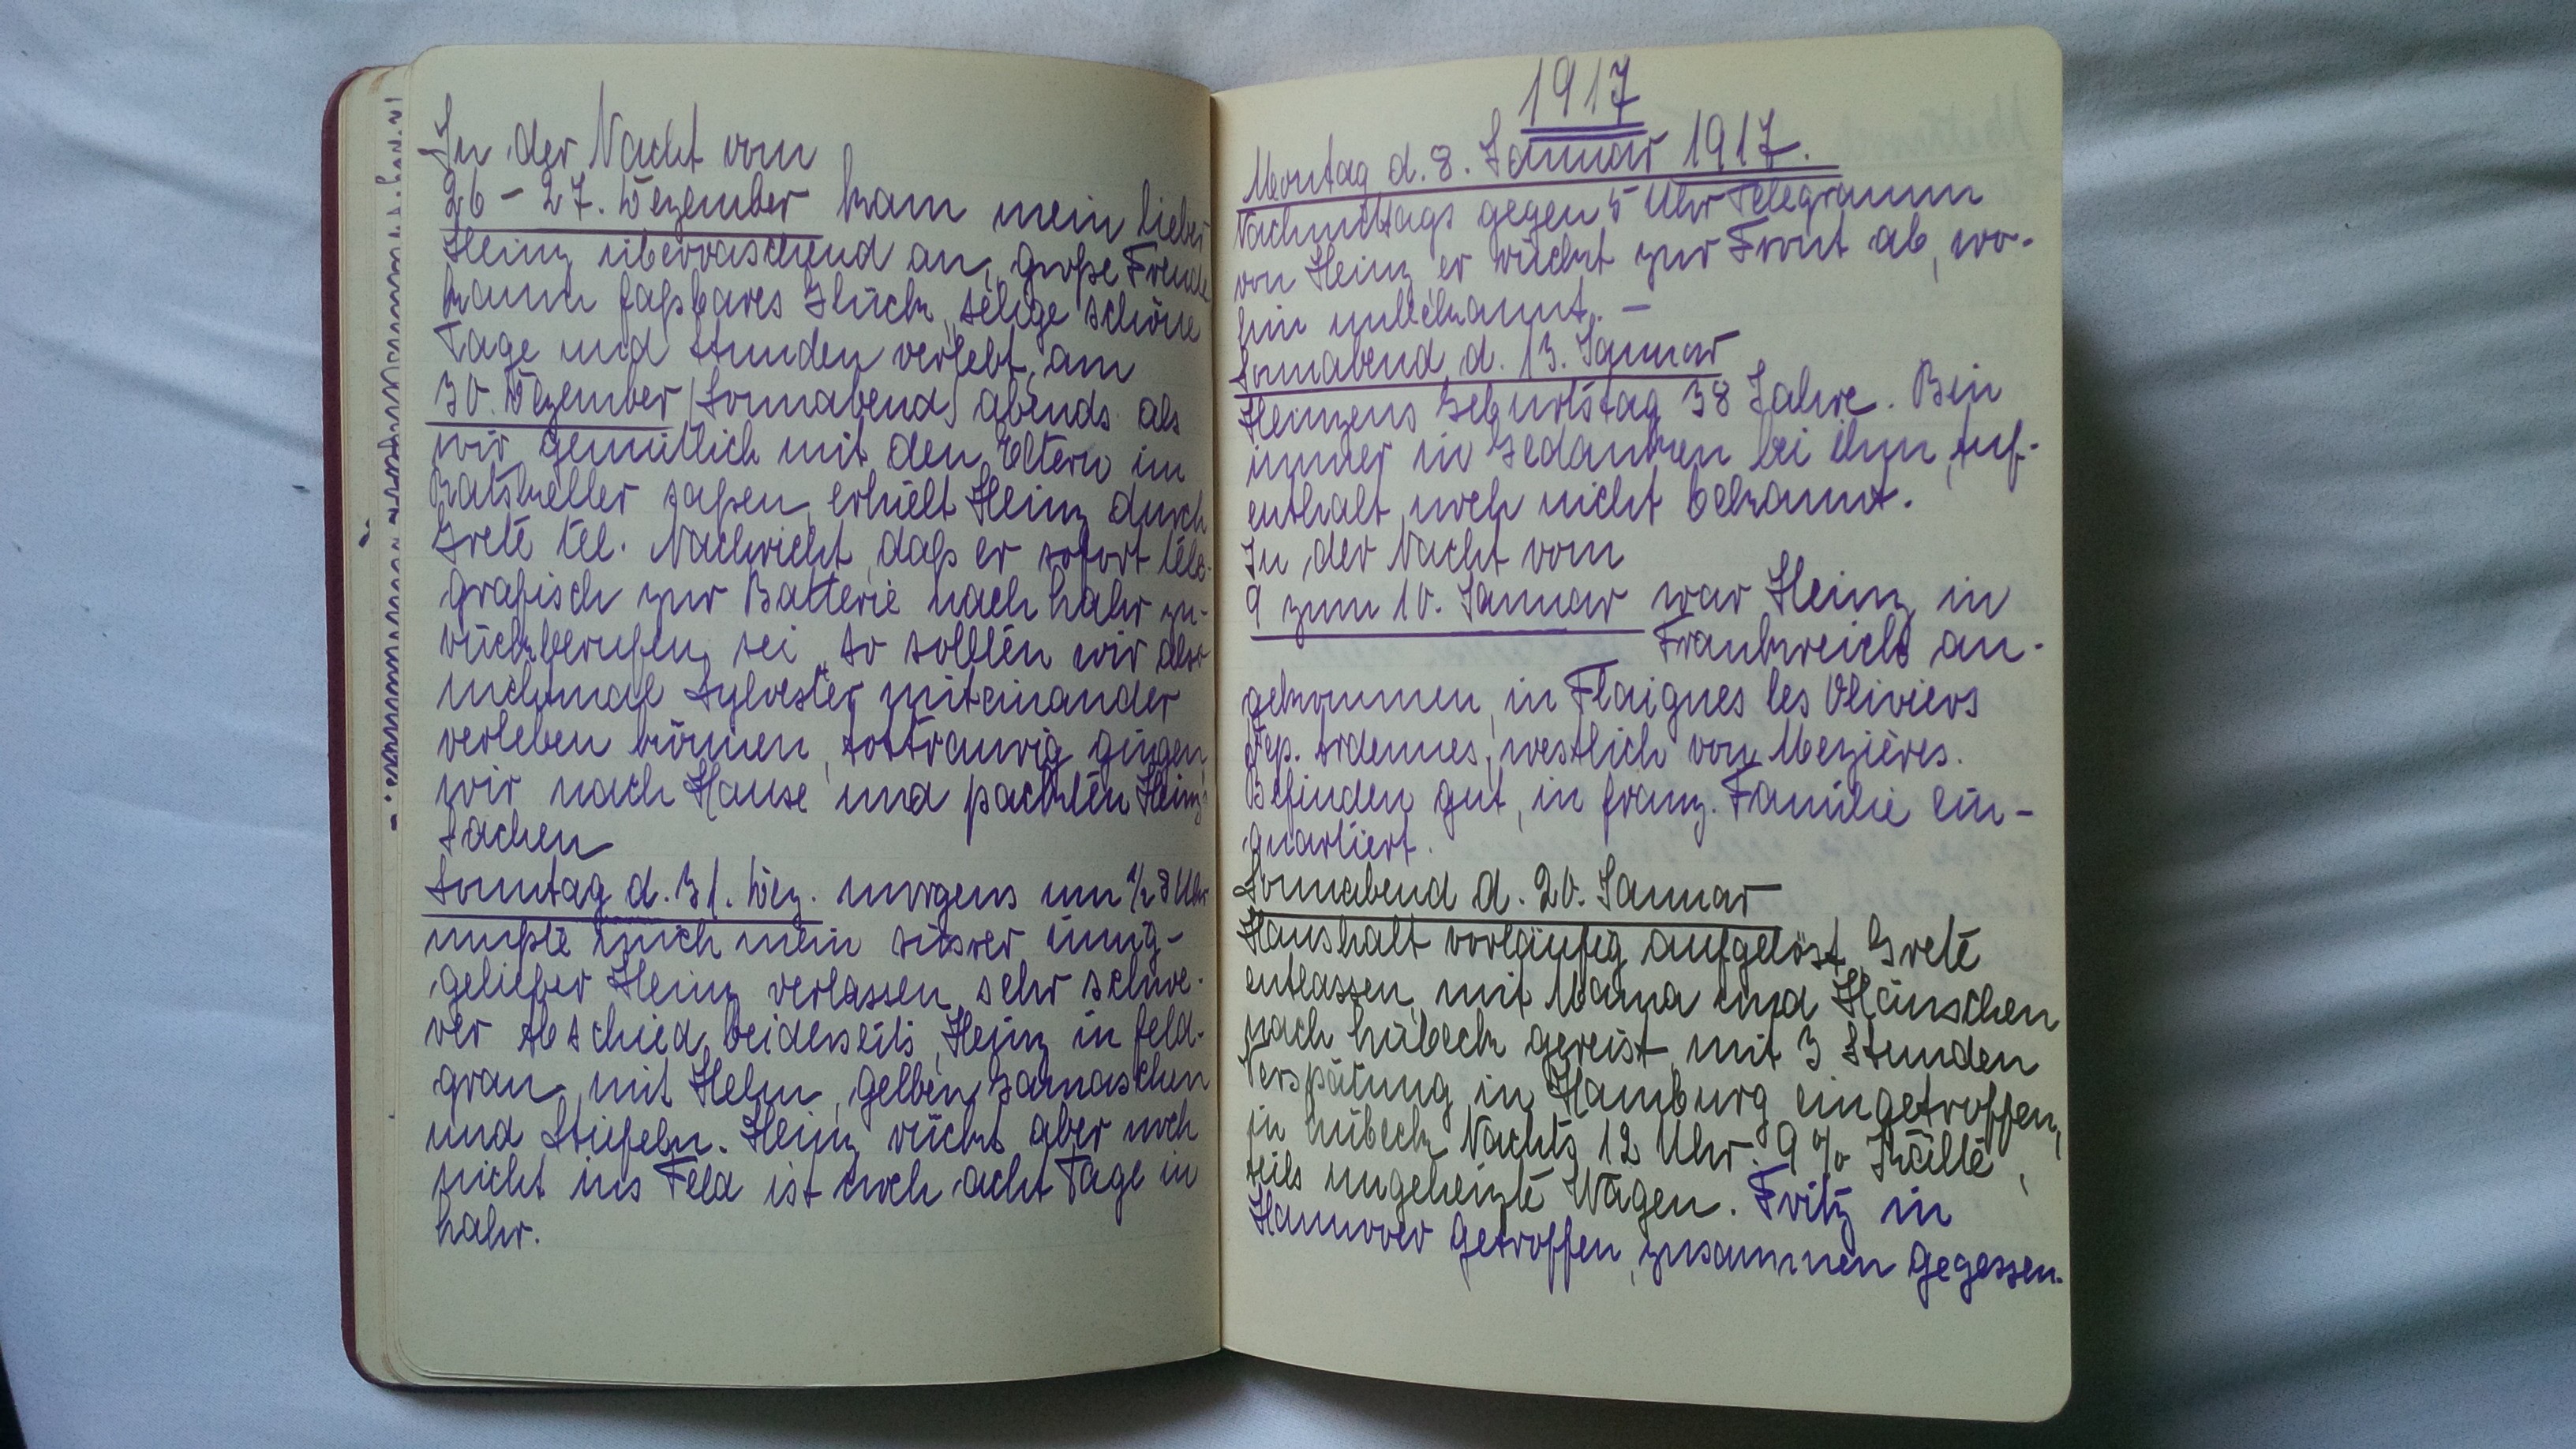 In der Nacht vom
26 – 27. Dezember kam mein lieber
Heinz überraschend an, große Freude
kaum faßbares Glück, selige schöne
Tage und Stunden verlebt, am
30. Dezember (Sonnabend) abends als
wir gemütlich mit den Eltern im
Ratskeller saßen, erhielt Heinz durch
Grete tel. Nachricht, daß er sofort tele-
grafisch zur Batterie nach Lahr zu-
rückberufen sei, so sollten wir also
nichtmal Sylvester miteinander
verleben können, tottraurig gingen
wir nach Hause und packten Heinz
Sachen
Sonntag d. 31. Dez. morgens um ½ 8 Uhr
mußte mich mein süsser innig-
geliebter Heinz verlassen, sehr schwe-
rer Abschied beiderseits, Heinz in feld-
grau mit Helm, gelben Gamaschen
und Stiefeln. Heinz rückt aber noch
nicht ins Feld ist noch acht Tage in
Lahr.
1917
Montag d. 8. Januar 1917.
Nachmittags gegen 5 Uhr Telegramm
von Heinz, er rückt zur Front ab, wo-
hin unbekannt. –
Sonnabend d. 13. Januar
Heinzens Geburtstag 38 Jahre. Bin
immer in Gedanken bei ihm, Auf-
enthalt noch nicht bekannt.
In der Nacht vom
9 zum 10. Januar war Heinz in
Frankreich an-
gekommen, in Flaignes les Oliviers
Dep. Ardennes, westlich von Mezières.
Befinden gut, in franz. Familie ein-
quartiert.
Sonnabend d. 20. Januar
Haushalt vorläufig aufgelöst, Grete
entlassen, mit Mama und Hänschen
nach Lübeck gereist, mit 3 Stunden
Verspätung in Hamburg eingetroffen,
in Lübeck Nachts 12 Uhr. 9 % Kälte,
teils ungeheizte Wagen. Fritz in
Hannover getroffen, zusammen gegessen.